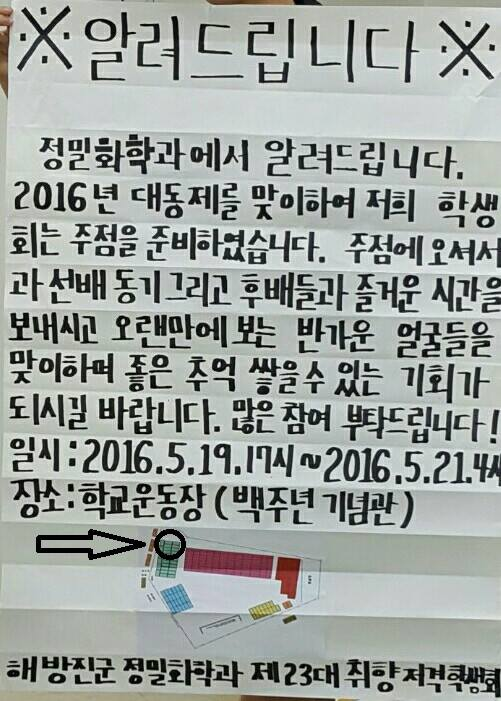 ※알려드립니다※
정밀화학과에서 알려드립니다.
2016년 대동제를 맞이하여 저희 학생
회는 주점을 준비하였습니다. 주점에 오셔서
과 선배 동기 그리고 후배들과 즐거운 시간을
보내시고 오랜만에 보는 반가운 얼굴들을
맞이하며 좋은 추억 쌓을수 있는 기회가
되시길 바랍니다. 많은 참여 부탁드립니다!
일시:2016.5.19.17시~2016.5.21.4시
장소:학교운동장 (백주년 기념관)
해방진군 정밀화학과 제23대 취향저격학생회